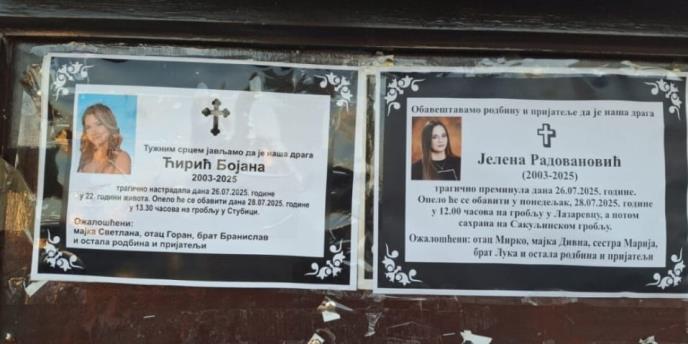 Тужним срцем јављамо да је наша драга
Ћирић Бојана
2003-2025
трагично настрадала дана 26.07.2025. године
у 22. години живота. Опело ће се обавити дана 28.07.2025. године
у 13.30 часова на гробљу у Стубици.
Ожалошћени:
мајка Светлана, отац Горан, брат Бранислав
и остала родбина и пријатељи
Обавештавамо родбину и пријатеље да је наша драга
Јелена Радовановић
(2003-2025)
трагично преминула дана 26.07.2025. године.
Опело ће се обавити у понедељак, 28.07.2025. године
у 12.00 часова на гробљу у Лазаревцу, а потом
сахрана на Сакуљинском гробљу.
Ожалошћени: отац Мирко, мајка Дивна, сестра Марија,
брат Лука и остала родбина и пријатељи